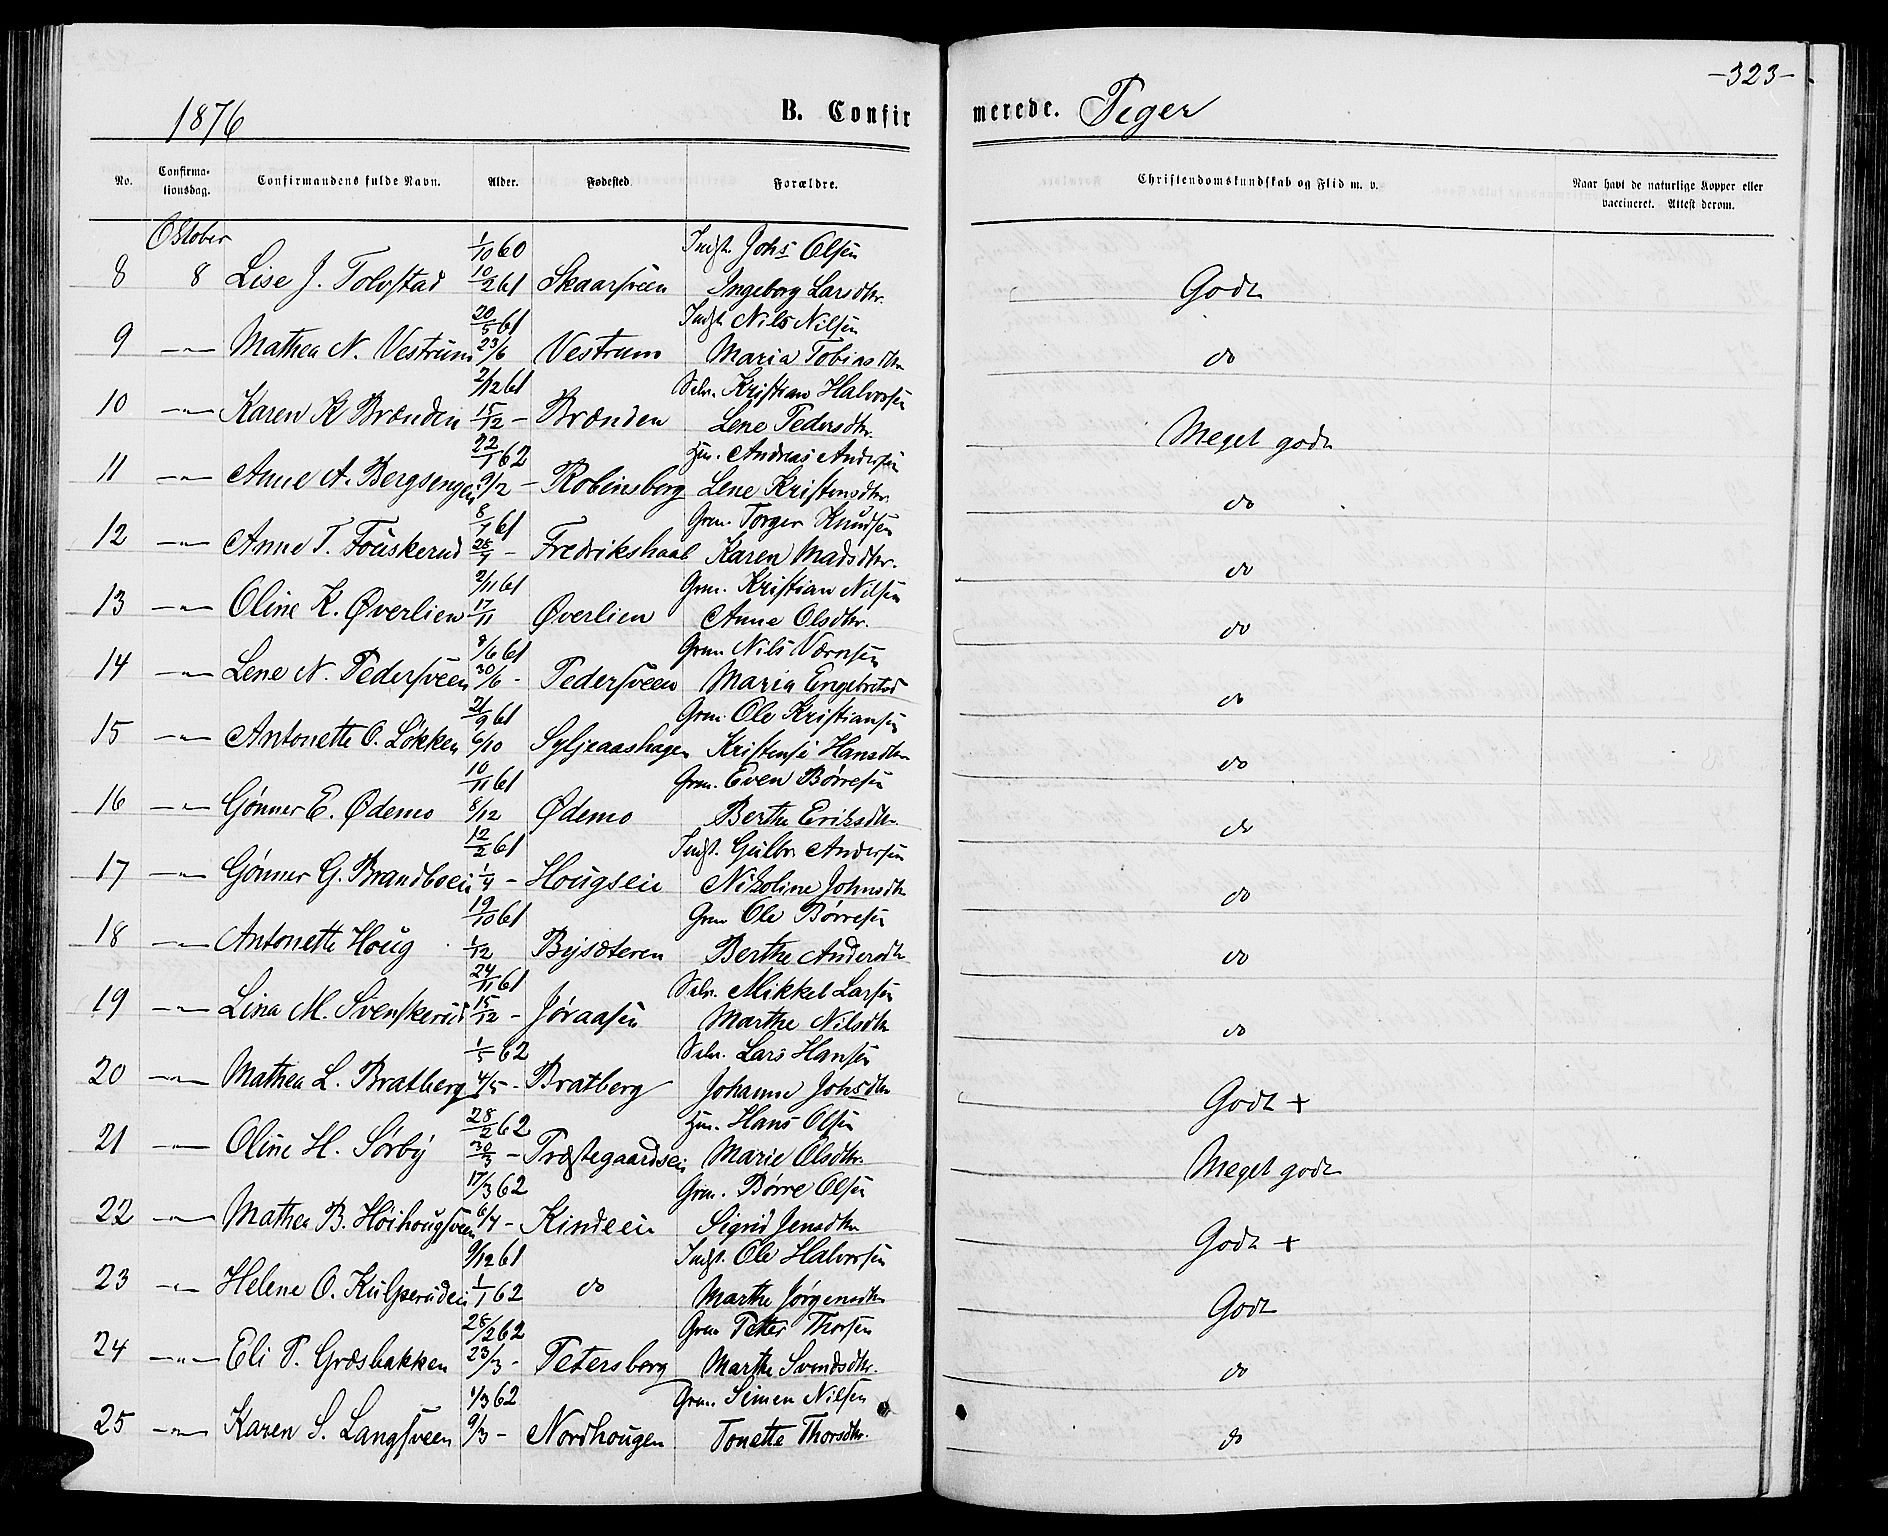 -323-
1876 B. Confirmerede. Piger
No. Confirmationsdag. Confirmandens fulde Navn. Alder. Fødested. Forældre. Christendomskundskab og Flid m. v. Naar havt de naturlige Kopper eller vaccineret. Attest derom.
Oktober 1/10 60 Indst. Johs Olsen
8 8 Lise J. Tolvstad 10/2 61 Skaarsveen Ingeborg Larsdtr. Godt
20/5 61 Indst. Nils Nilsen
9 —"— Mathea N. Vestrum 23/6 Vestrum Maria Tobiasdtr do
2/12 61 Selv. Kristian Halvorsen
10 —"— Karen K Brænden 15/12 - Brænden Lene Pedersdtr. Meget godt
22/1 62 Hm. Andreas Andersen
11 —"— Anne A. Bergsengen 9/2 - Robinsborg Lene Kristensdtr. do
61 Grm. Torger Knudsen
12 —"— Anne T. Fouskerud - Fredrikshaab Karen Madsdtr. do
2/11 61 Grm. Kristian Nilsen
13 —"— Oline K. Øverlien 17/11 Øverlien Anne Olsdtr. do
9/6 61 Grm Nils
14 —"— Lene N. Pedersveen 30/6 - Pedersveen Maria Engebretsd do
21/9 61 Grm. Ole Kristiansen
15 —"— Antonette O. Løkken 6/10 Syljeaashagen Kristense Hansdtr do
10/11 61 Grm. Even Børresen
16 —"— Gønner E. Ødemo 8/12 Ødemo Berthe Eriksdtr. do
12/2 61 Indst. Gulbr. Andersen
17 —"— Gønner G. Brandboein 1/4 - Hougseie Nikoline Johnsdtr do
19/10 61 Grm Ole Børresen
18 —"— Antonette Houg 1/12 Bysæteren Berthe Andersdtr do
24/11 61 Selv. Mikkel Larsen
19 —"— Lina M. Svenskerud 15/12 - Jøraasen Marthe Nilsdtr do
1/5 62 Selv. Lars Hansen
20 —"— Mathea L. Bratberg 4/5 - Bratberg Johanne Johsdtr Godt +
28/2 62 Hm. Hans Olsen
21 —"— Oline H. Sørby 30/3 - Præstegaardseie Marie Olsdtr. Meget godt
17/3 62 Grm. Børre Olsen
22 —"— Mathea B. Høihougsveen 6/4 - Kindeeie Sigrid Jensdtr Godt +
9/12 61 Indst. Ole Halvorsen
23 —"— Helene O. Kulperudeie 1/1 62 do Marthe Jørgensdtr Godt
28/2 62 Grm Petter Thorsen
24 —"— Eli P. Græsbakken 23/3 - Petersborg Marthe Svendsdtr. do
1/3 62 Grm. Simen Nilsen
25 —"— Karen S. Langsveen 9/3 - Nordhougen Tonette Thorsdtr. do